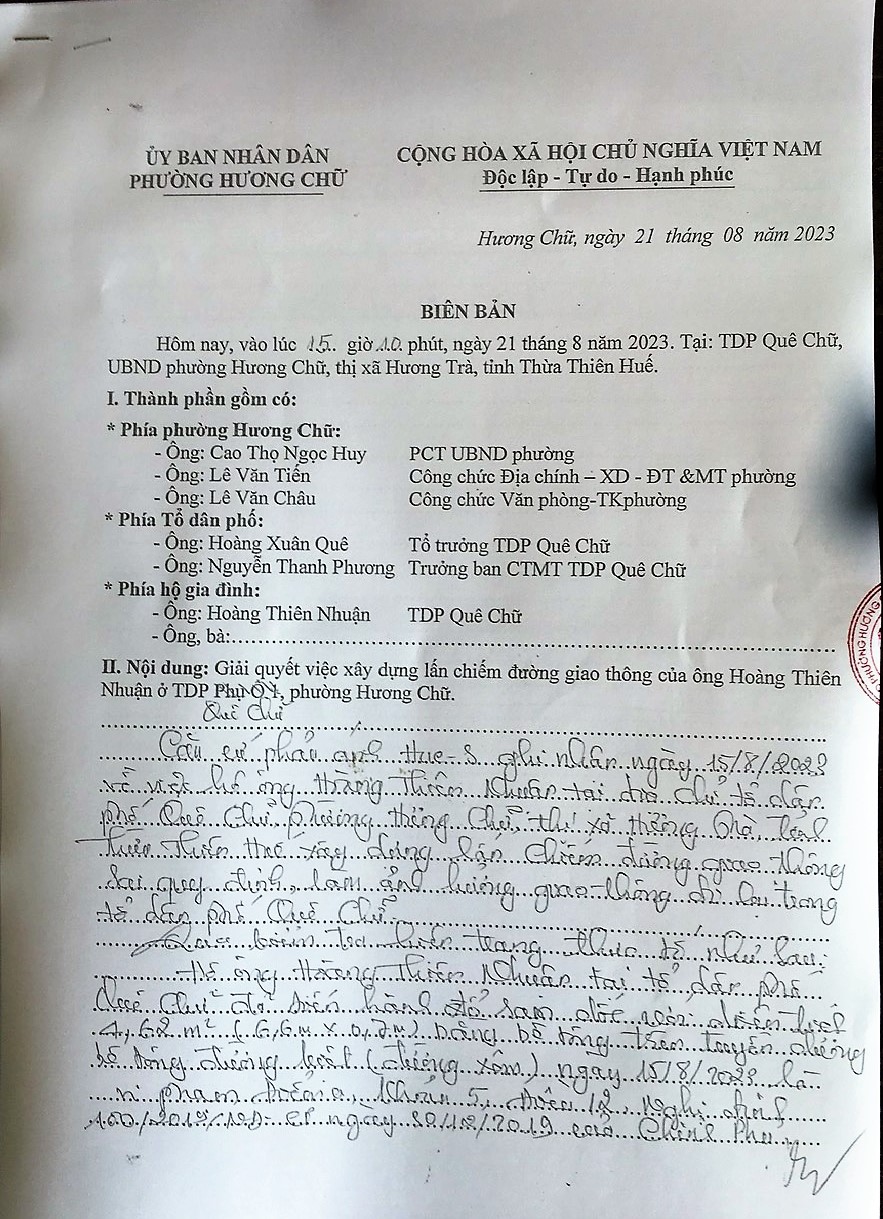 ỦY BAN NHÂN DÂN
PHƯỜNG HƯƠNG CHỮ
CỘNG HÒA XÃ HỘI CHỦ NGHĨA VIỆT NAM
Độc lập - Tự do - Hạnh phúc
Hương Chữ, ngày 21 tháng 08 năm 2023
BIÊN BẢN
Hôm nay, vào lúc 15 giờ 10 phút, ngày 21 tháng 8 năm 2023. Tại: TDP Quê Chữ,
UBND phường Hương Chữ, thị xã Hương Trà, tỉnh Thừa Thiên Huế.
I. Thành phần gồm có:
* Phía phường Hương Chữ:
- Ông: Cao Thọ Ngọc Huy PCT UBND phường
- Ông: Lê Văn Tiến Công chức Địa chính – XD - ĐT &MT phường
- Ông: Lê Văn Châu Công chức Văn phòng-TKphường
* Phía Tổ dân phố:
- Ông: Hoàng Xuân Quê Tổ trưởng TDP Quê Chữ
- Ông: Nguyễn Thanh Phương Trưởng ban CTMT TDP Quê Chữ
* Phía hộ gia đình:
- Ông: Hoàng Thiên Nhuận TDP Quê Chữ
- Ông, bà:
II. Nội dung: Giải quyết việc xây dựng lấn chiếm đường giao thông của ông Hoàng Thiên
Nhuận ở TDP phường Hương Chữ.
Quê Chữ
Căn cứ phản ánh Hue-S ghi nhận ngày 15/8/2023
về việc hộ ông Hoàng Thiên Nhuận tại địa chỉ tổ dân
phố Quê Chữ phường Hương Chữ, thị xã Hương Trà, tỉnh
Thừa Thiên Huế xây dựng lấn chiếm đường giao thông
sai quy định, làm ảnh hưởng giao thông đi lại trong
tổ dân phố Quê Chữ.
Qua kiểm tra hiện trạng thực tế như sau:
Hộ ông Hoàng Thiên Nhuận tại tổ dân phố
Quê Chữ đã tiến hành đổ sạn dốc với diện tích
4,62 m² (6,6m x 0,7m) bằng bê tông trên tuyến đường
bê tông đường kiệt (đường xóm) ngày 15/8/2023 là
vi phạm Điểm a, Khoản 5, Điều 12, Nghị định
100/2019/NĐ-CP ngày 30/12/2019 của Chính Phủ
PHƯỜNG HƯƠNG